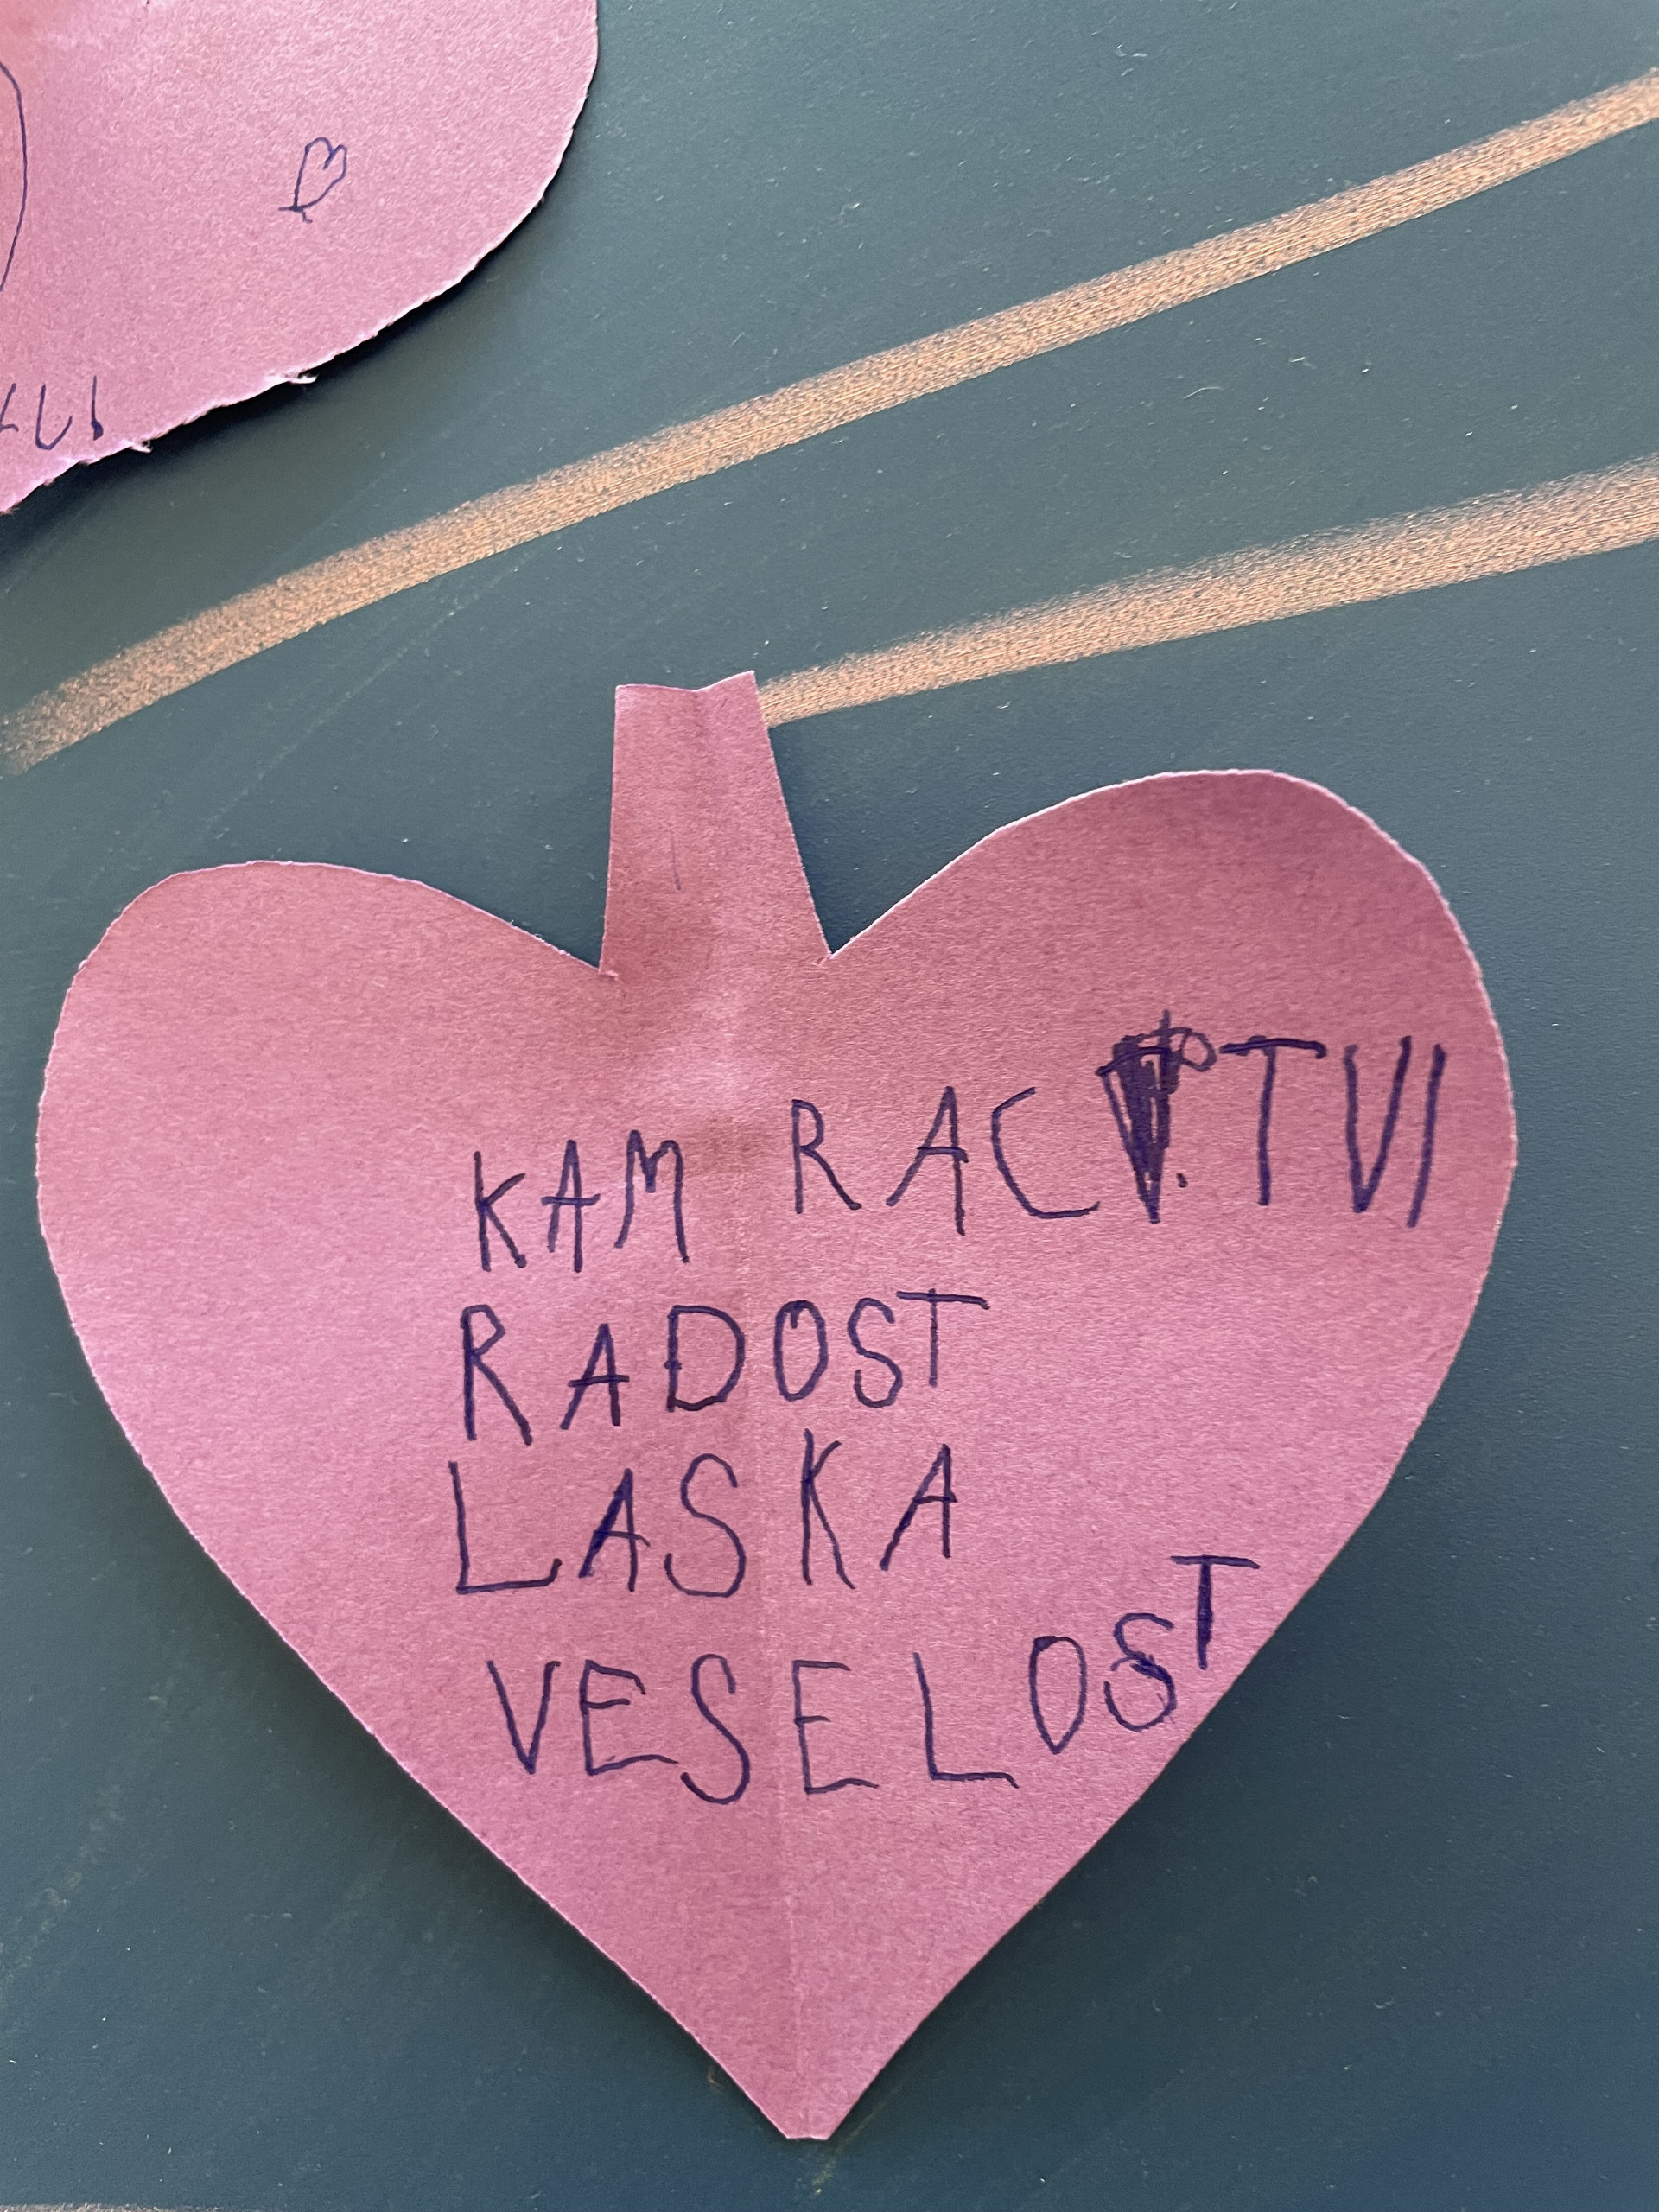 KAM RAC TVI
RADOST
LASKA
VESELOST